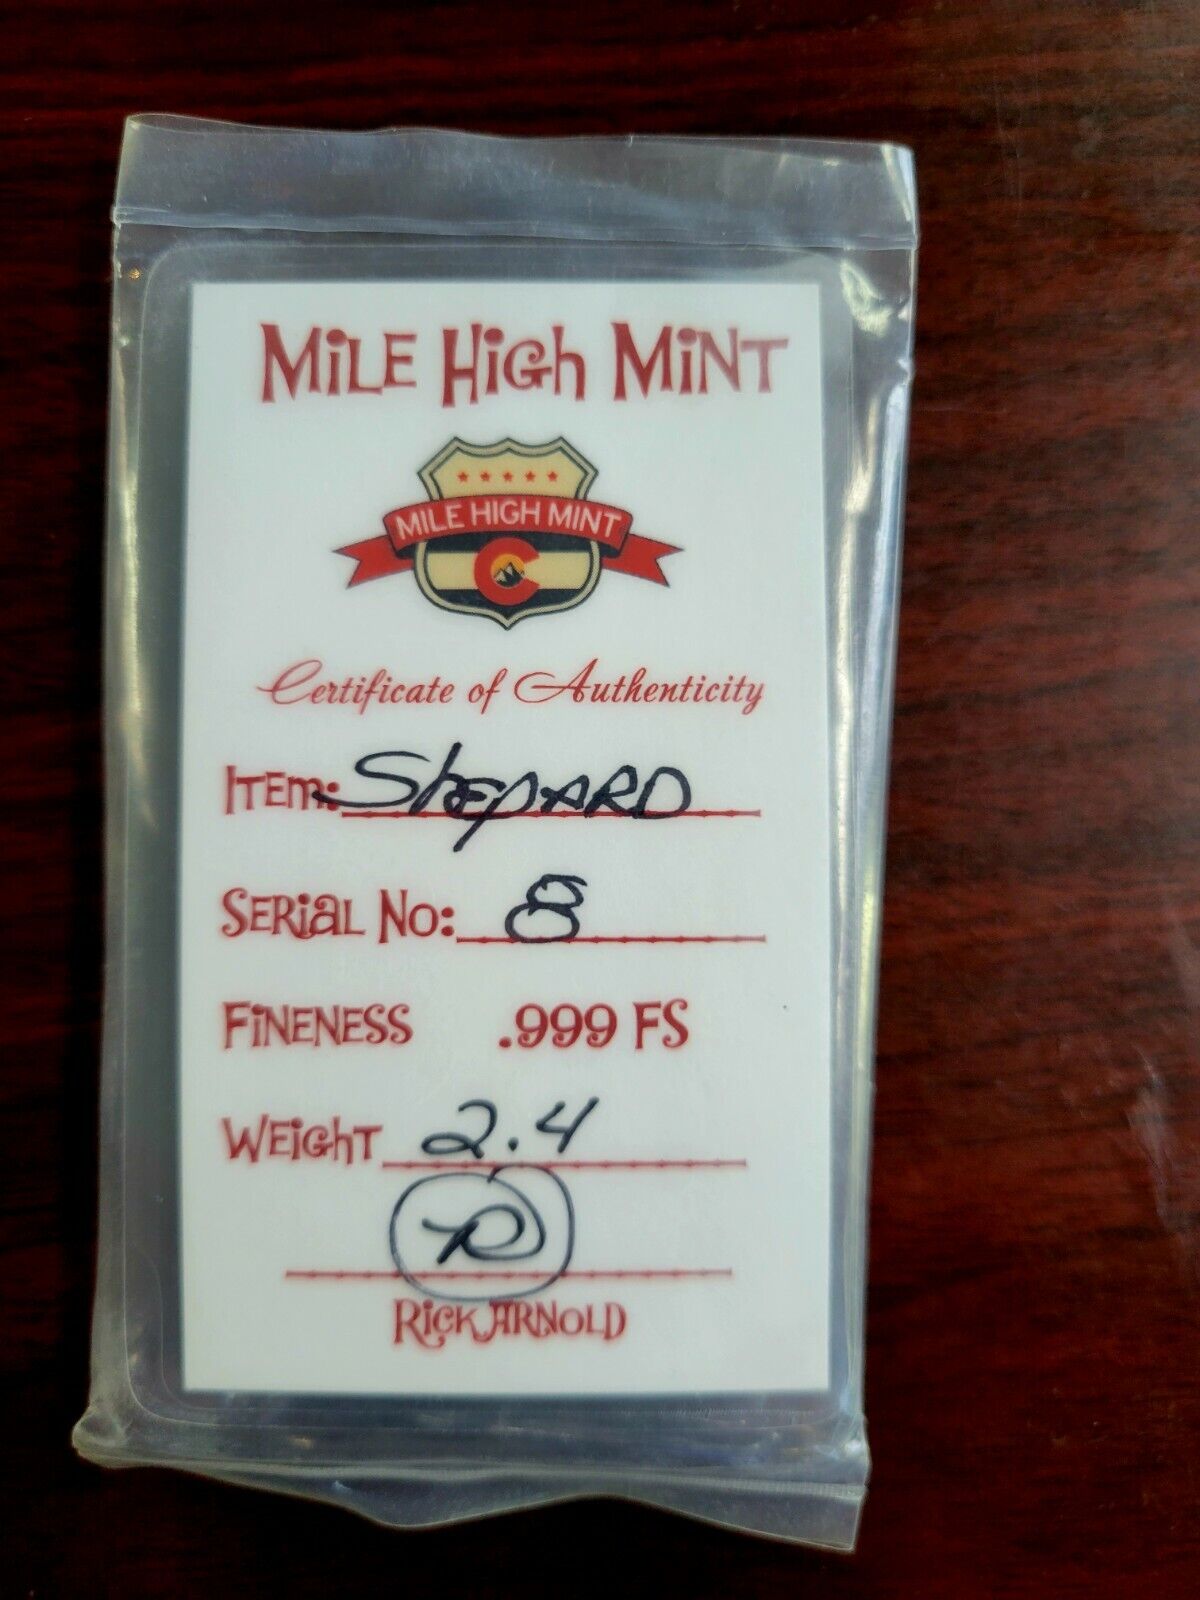 MiLE HiGh MiNT
MILE HIGH MINT
Certificate of Authenticity
ITEM: ShEpARD
SERiaL No: 8
FiNENESS .999 FS
WEiGhT 2.4
R
RicK ARNOLD